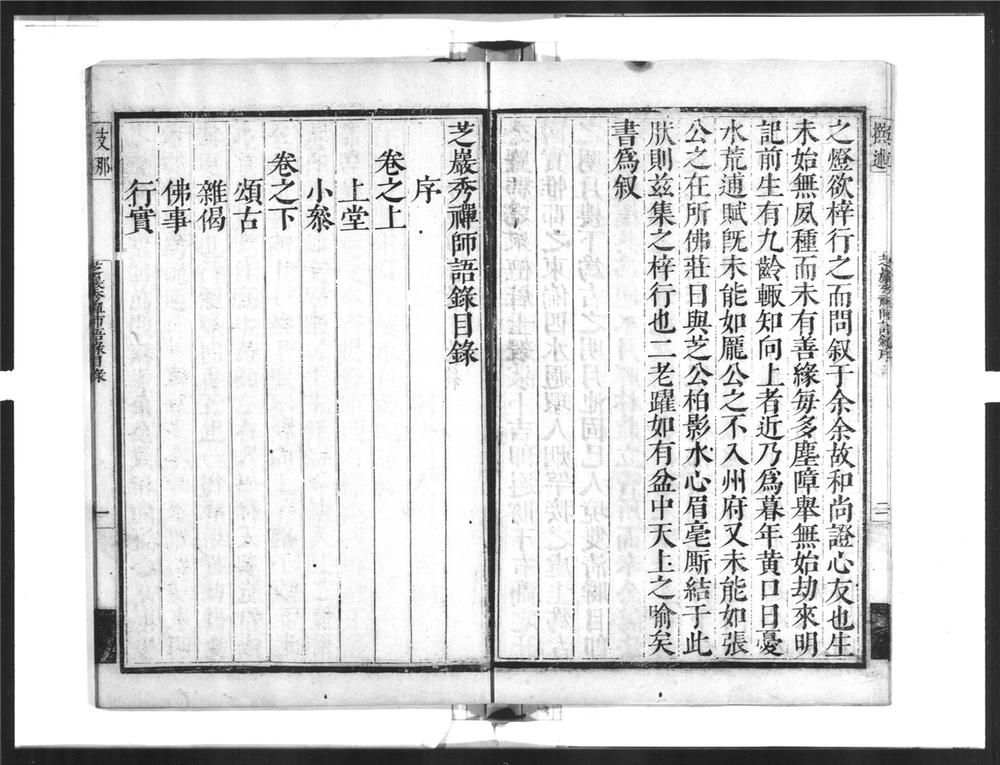 撰述
之燈欲梓行之而問叙于余余故和尚證心友也生
未始無夙種而未有善緣毎多塵障舉無始劫來明
記前生有九齡輙知向上者近乃爲暮年黃口日憂
水荒逋賦旣未能如龐公之不入州府又未能如張
公之在所佛莊日與芝公柏影水心眉毫厮結于此
肰則兹集之梓行也二老躍如有盆中天上之喻矣
書爲叙
芝巖秀禪師語錄序
二
芝巖秀禪師語錄目錄
序
卷之上
上堂
小叅
卷之下
頌古
雜偈
佛事
行實
支那
芝巖秀禪師語錄目錄
一